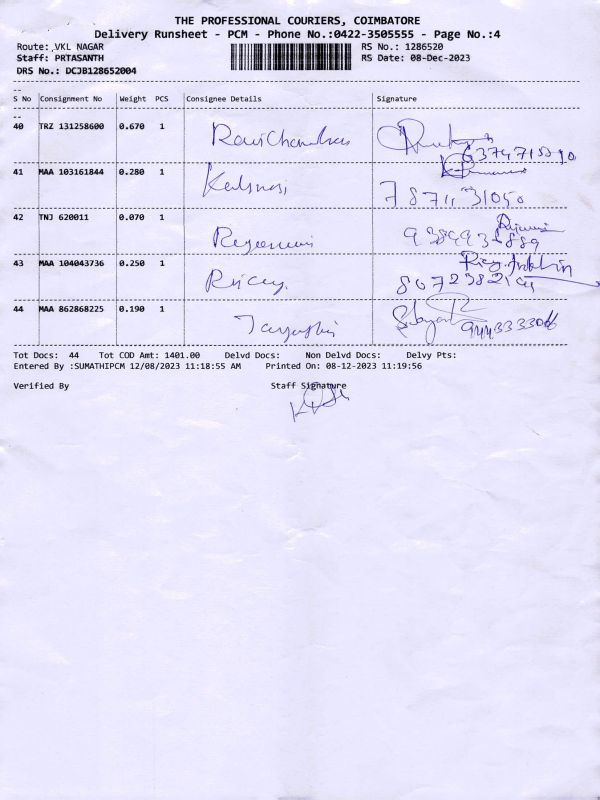 THE PROFESSIONAL COURIERS, COIMBATORE
Delivery Runsheet - PCM - Phone No.:0422-3505555 - Page No.:4
Route: VKL NAGAR RS No.: 1286520
Staff: PRTASANTH RS Date: 08-Dec-2023
DRS No.: DCJB128652004
--
S No Consignment No Weight PCS Consignee Details Signature
--
40 TRZ 131258600 0.670 1 RaviChandran
41 MAA 103161844 0.280 1
7871131050
42 TNJ 620011 0.070 1
43 MAA 104043736 0.250 1
44 MAA 862868225 0.190 1
Tot Docs: 44 Tot COD Amt: 1401.00 Delvd Docs: Non Delvd Docs: Delvy Pts:
Entered By :SUMATHIPCM 12/08/2023 11:18:55 AM Printed On: 08-12-2023 11:19:56
Verified By Staff Signature